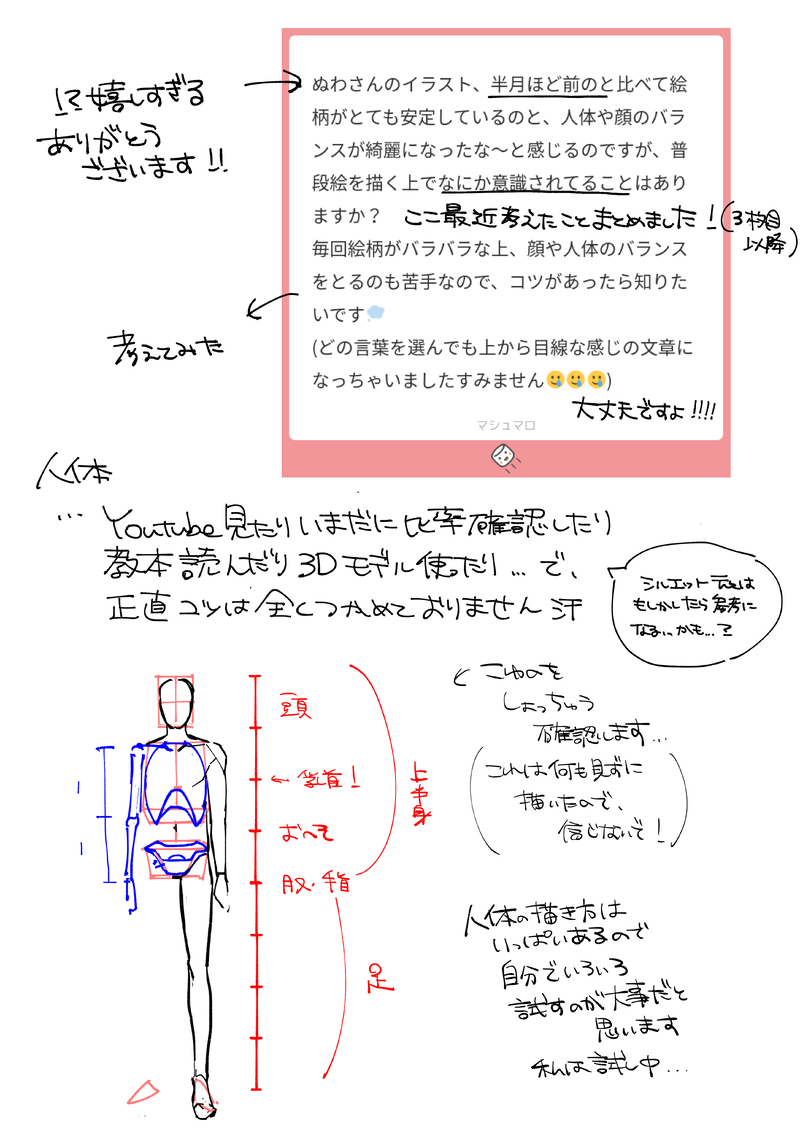 !?嬉しすぎる
ありがとう
ございます!!
ぬわさんのイラスト、半月ほど前のと比べて絵
柄がとても安定しているのと、人体や顔のバラ
ンスが綺麗になったな〜と感じるのですが、普
段絵を描く上でなにか意識されてることはあり
ますか？
ここ最近考えたことまとめました!(3枚目
以降)
毎回絵柄がバラバラな上、顔や人体のバランス
をとるのも苦手なので、コツがあったら知りた
いです💭
考えてみた
(どの言葉を選んでも上から目線な感じの文章に
なっちゃいましたすみません🥲🥲🥲)
大丈夫ですよ!!!!
マシュマロ
人体
… Youtube見たりいまだに比率確認したり
教本読んだり3Dモデル使ったり…で、
正直コツは全くつかめておりません 汗
シルエット
もしかしたら参考に
なるかも…?
こゆのを
しょっちゅう
確認します…
(これは何も見ずに
描いたので、
信じないで!)
頭
← 乳首!
おへそ
股・手首
上半身
足
人体の描き方は
いっぱいあるので
自分でいろいろ
試すのが大事だと
思います
私は試し中…